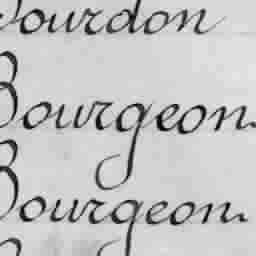 Bourdon
Bourgeon.
Bourgeon.